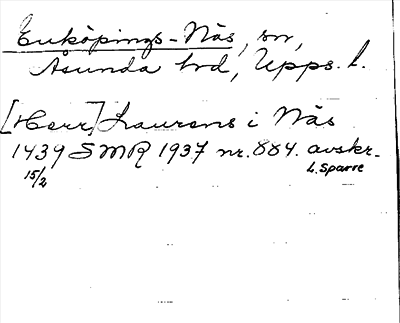 Enköpings-Näs, sn,
Åsunda hd, Upps. l.
[Herr] Laurens i Näs
1439 SMR 1937 nr. 884. avskr.
15/2 L. Sparre